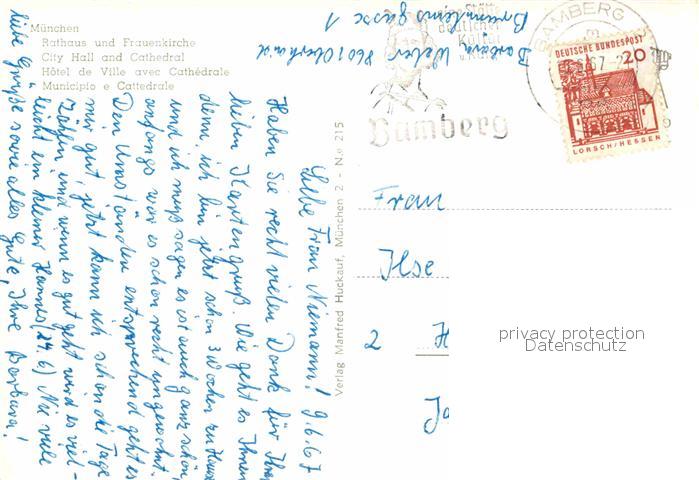 München
Rathaus und Frauenkirche
City Hall and Cathedral
Hôtel de Ville avec Cathédrale
Municipio e Cattedrale
Barbara Weber 8601 Oberhaid
Brünnleinsgasse 1
deutscher
Kultur
Bamberg
BAMBERG
67
DEUTSCHE BUNDESPOST
20
LORSCH/HESSEN
Verlag Manfred Huckauf, München 2 - N.o 215
9.6.67
Liebe Frau Niemann!
Haben Sie recht vielen Dank für Ihren
lieben Kartengruß. Wie geht es Ihnen
denn, ich bin jetzt schon 3 Wochen zu Hause
und ich muß sagen es ist auch ganz schön,
anfangs war es schon recht ungewohnt.
Den Umständen entsprechend geht es
mir gut jetzt kann ich schon die Tage
zählen und wenn es gut geht wird es viel-
leicht ein kleiner Hannes (24.6) Nun viele
liebe Grüße sowie alles Gute, Ihre Barbara!
Frau
Ilse
2 H
Ja
privacy protection
Datenschutz